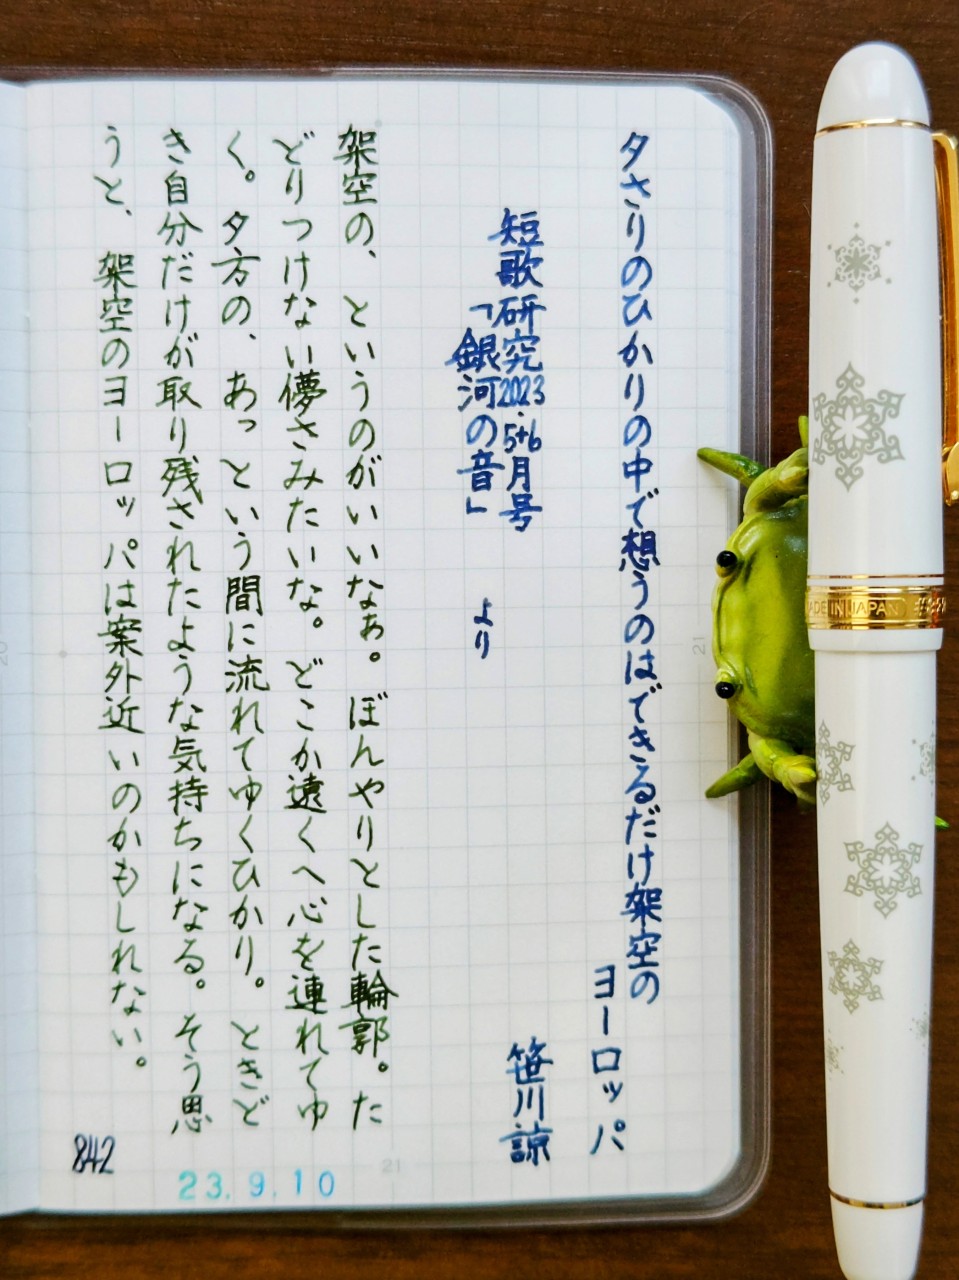 夕さりのひかりの中で想うのはできるだけ架空の
ヨーロッパ
笹川諒
短歌研究2023.5+6月号
「銀河の音」
より
架空の、というのがいいなぁ。ぼんやりとした輪郭。た
どりつけない儚さみたいな。どこか遠くへ心を連れてゆ
く。夕方の、あっという間に流れてゆくひかり。ときど
き自分だけが取り残されたような気持ちになる。そう思
うと、架空のヨーロッパは案外近いのかもしれない。
842
23.9.10
21
21
20
MADE IN JAPAN